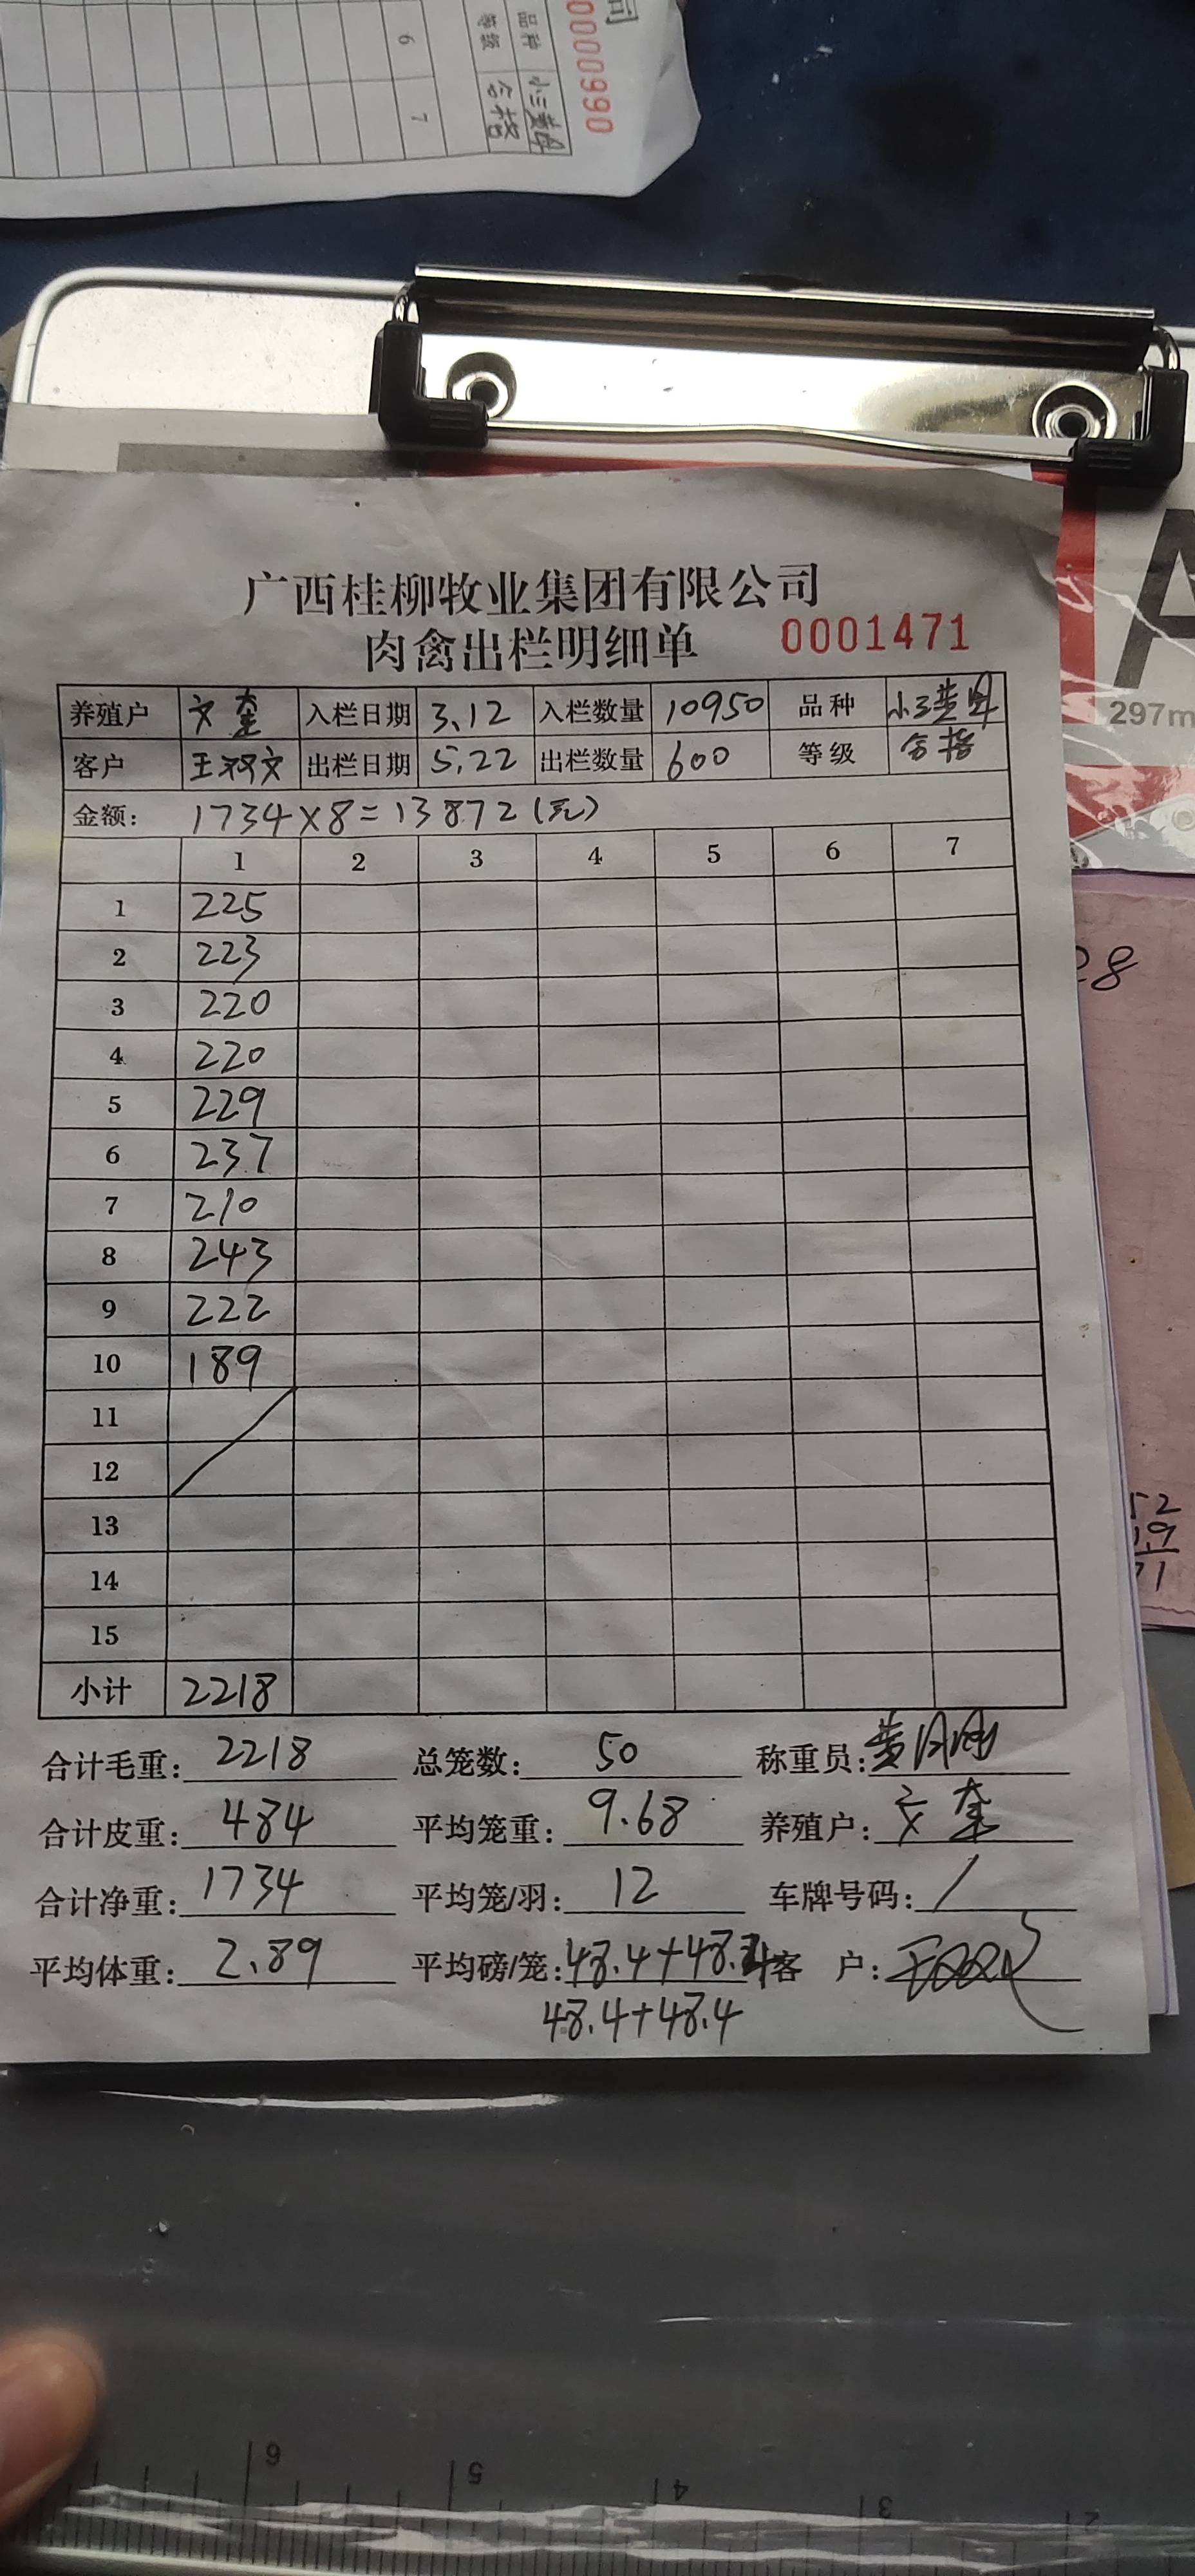 司
0000990
品种 小三黄母
等级 合格
6
7
广西桂柳牧业集团有限公司
肉禽出栏明细单 0001471
养殖户 文奎 入栏日期 3.12 入栏数量 10950 品种 小三黄母
客户 王双文 出栏日期 5.22 出栏数量 600 等级 合格
金额: 1734×8=13872(元)
1 2 3 4 5 6 7
1 225
2 223
3 220
4 220
5 229
6 237
7 210
8 243
9 222
10 189
11
12
13
14
15
小计 2218
合计毛重: 2218 总笼数: 50 称重员:
合计皮重: 484 平均笼重: 9.68 养殖户: 文奎
合计净重: 1734 平均笼/羽: 12 车牌号码: /
平均体重: 2.89 平均磅/笼: 48.4+48.4 客户:
48.4+48.4
A
297m
28
52
19
71
6 5 4 3 2